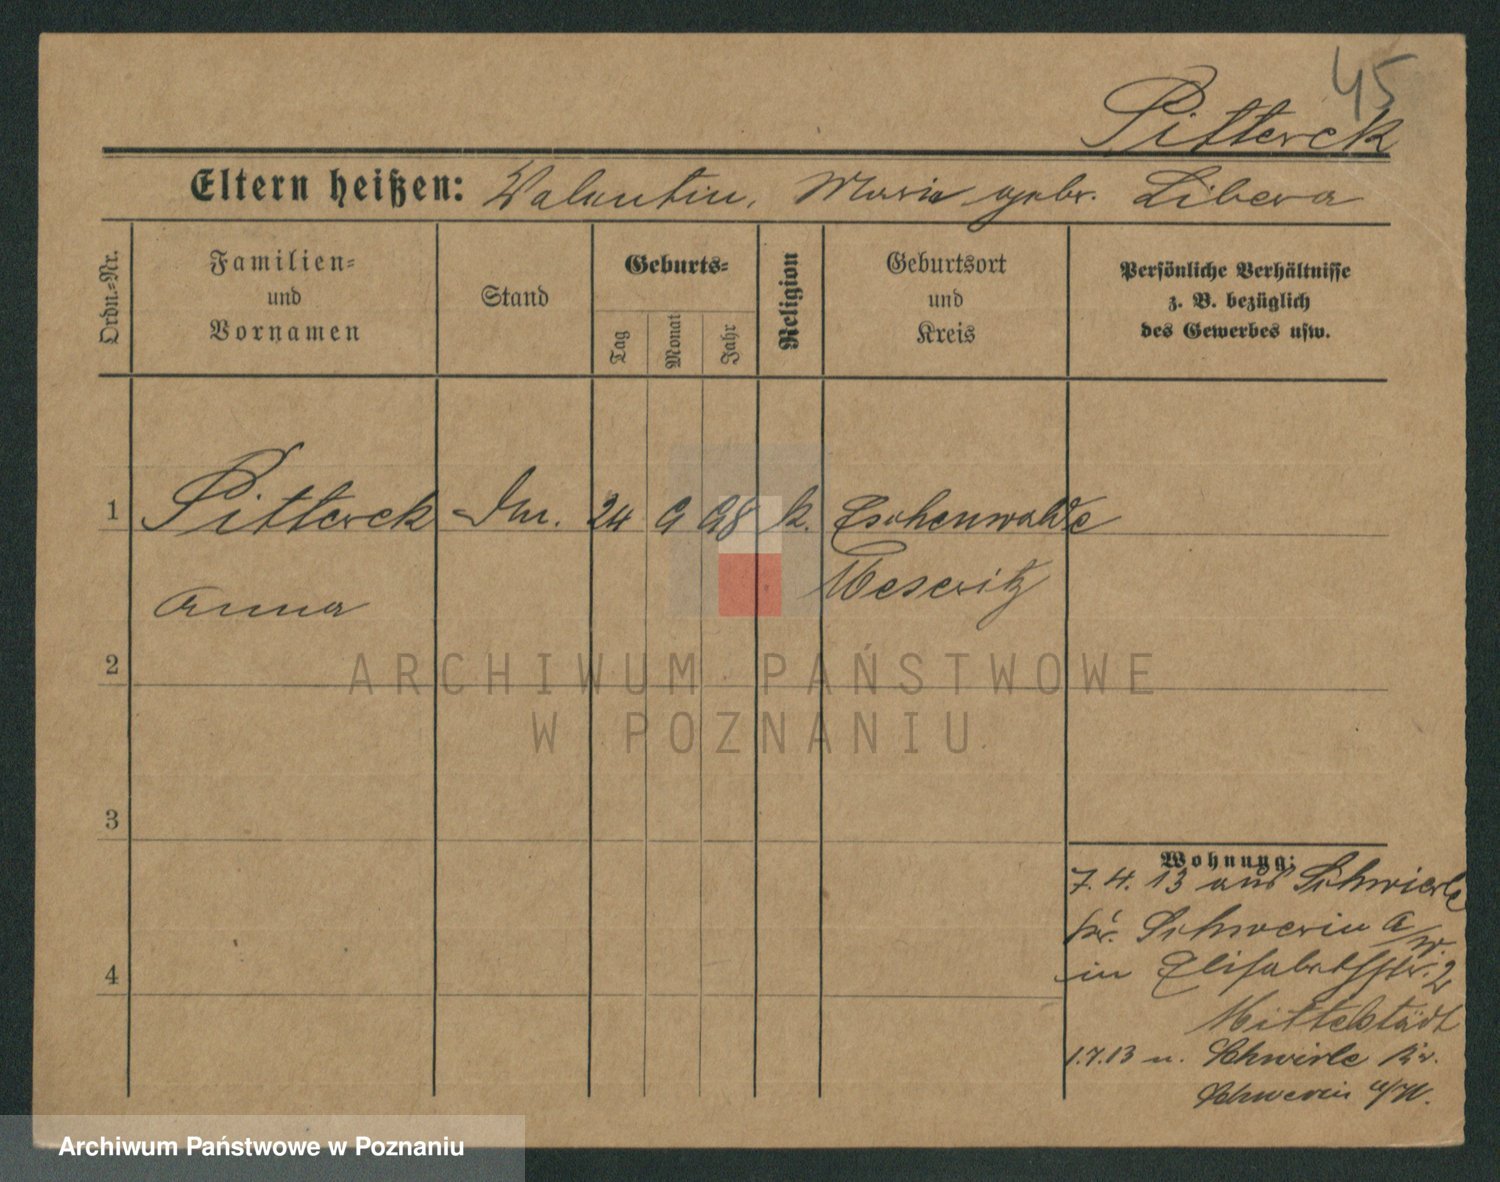 45
Pitterck
Eltern heißen: Valentin, Marie gebr. Libera
Ordn.=Nr.
Familien=
und
Vornamen
Stand
Geburts=
Tag
Monat
Jahr
Religion
Geburtsort
und
Kreis
Persönliche Verhältnisse
z. B. bezüglich
des Gewerbes usw.
1 Pitterck 24 9 98 k. Eschenwalde
Anna Meseritz
2
3
4
Wohnung:
7. 4. 13 aus Schwirle
kr. Schwerin a/W.
in Elisabethstr. 2
Mittelstädt
1.7.13 n. Schwirle Kr.
Schwerin a/W.
ARCHIWUM PAŃSTWOWE
W POZNANIU
Archiwum Państwowe w Poznaniu